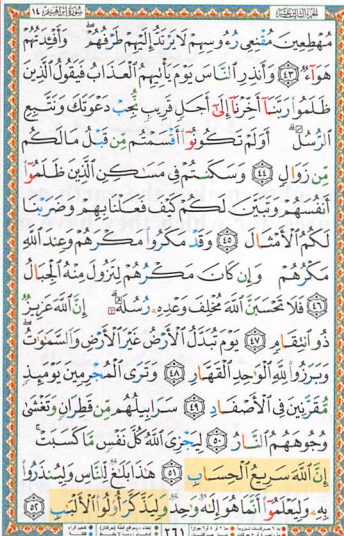 الجزء الثالث عشر سورة إبراهيم ١٤
مُهْطِعِينَ مُقْنِعِي رُءُوسِهِمْ لَا يَرْتَدُّ إِلَيْهِمْ طَرْفُهُمْ ۖ وَأَفْـِٔدَتُهُمْ
هَوَآءٌ ﴿٤٣﴾ وَأَنذِرِ ٱلنَّاسَ يَوْمَ يَأْتِيهِمُ ٱلْعَذَابُ فَيَقُولُ ٱلَّذِينَ
ظَلَمُوا۟ رَبَّنَآ أَخِّرْنَآ إِلَىٰٓ أَجَلٍ قَرِيبٍ نُّجِبْ دَعْوَتَكَ وَنَتَّبِعِ
ٱلرُّسُلَ ۗ أَوَلَمْ تَكُونُوٓا۟ أَقْسَمْتُم مِّن قَبْلُ مَا لَكُم
مِّن زَوَالٍ ﴿٤٤﴾ وَسَكَنتُمْ فِي مَسَٰكِنِ ٱلَّذِينَ ظَلَمُوٓا۟
أَنفُسَهُمْ وَتَبَيَّنَ لَكُمْ كَيْفَ فَعَلْنَا بِهِمْ وَضَرَبْنَا
لَكُمُ ٱلْأَمْثَالَ ﴿٤٥﴾ وَقَدْ مَكَرُوا۟ مَكْرَهُمْ وَعِندَ ٱللَّهِ
مَكْرُهُمْ وَإِن كَانَ مَكْرُهُمْ لِتَزُولَ مِنْهُ ٱلْجِبَالُ
﴿٤٦﴾ فَلَا تَحْسَبَنَّ ٱللَّهَ مُخْلِفَ وَعْدِهِۦ رُسُلَهُۥٓ ۗ إِنَّ ٱللَّهَ عَزِيزٌ
ذُو ٱنتِقَامٍ ﴿٤٧﴾ يَوْمَ تُبَدَّلُ ٱلْأَرْضُ غَيْرَ ٱلْأَرْضِ وَٱلسَّمَٰوَٰتُ ۖ
وَبَرَزُوا۟ لِلَّهِ ٱلْوَٰحِدِ ٱلْقَهَّارِ ﴿٤٨﴾ وَتَرَى ٱلْمُجْرِمِينَ يَوْمَئِذٍ
مُّقَرَّنِينَ فِي ٱلْأَصْفَادِ ﴿٤٩﴾ سَرَابِيلُهُم مِّن قَطِرَانٍ وَتَغْشَىٰ
وُجُوهَهُمُ ٱلنَّارُ ﴿٥٠﴾ لِيَجْزِيَ ٱللَّهُ كُلَّ نَفْسٍ مَّا كَسَبَتْ ۚ
إِنَّ ٱللَّهَ سَرِيعُ ٱلْحِسَابِ ﴿٥١﴾ هَٰذَا بَلَٰغٌ لِّلنَّاسِ وَلِيُنذَرُوا۟
بِهِۦ وَلِيَعْلَمُوٓا۟ أَنَّمَا هُوَ إِلَٰهٌ وَٰحِدٌ وَلِيَذَّكَّرَ أُو۟لُوا۟ ٱلْأَلْبَٰبِ ﴿٥٢﴾
٢٦١